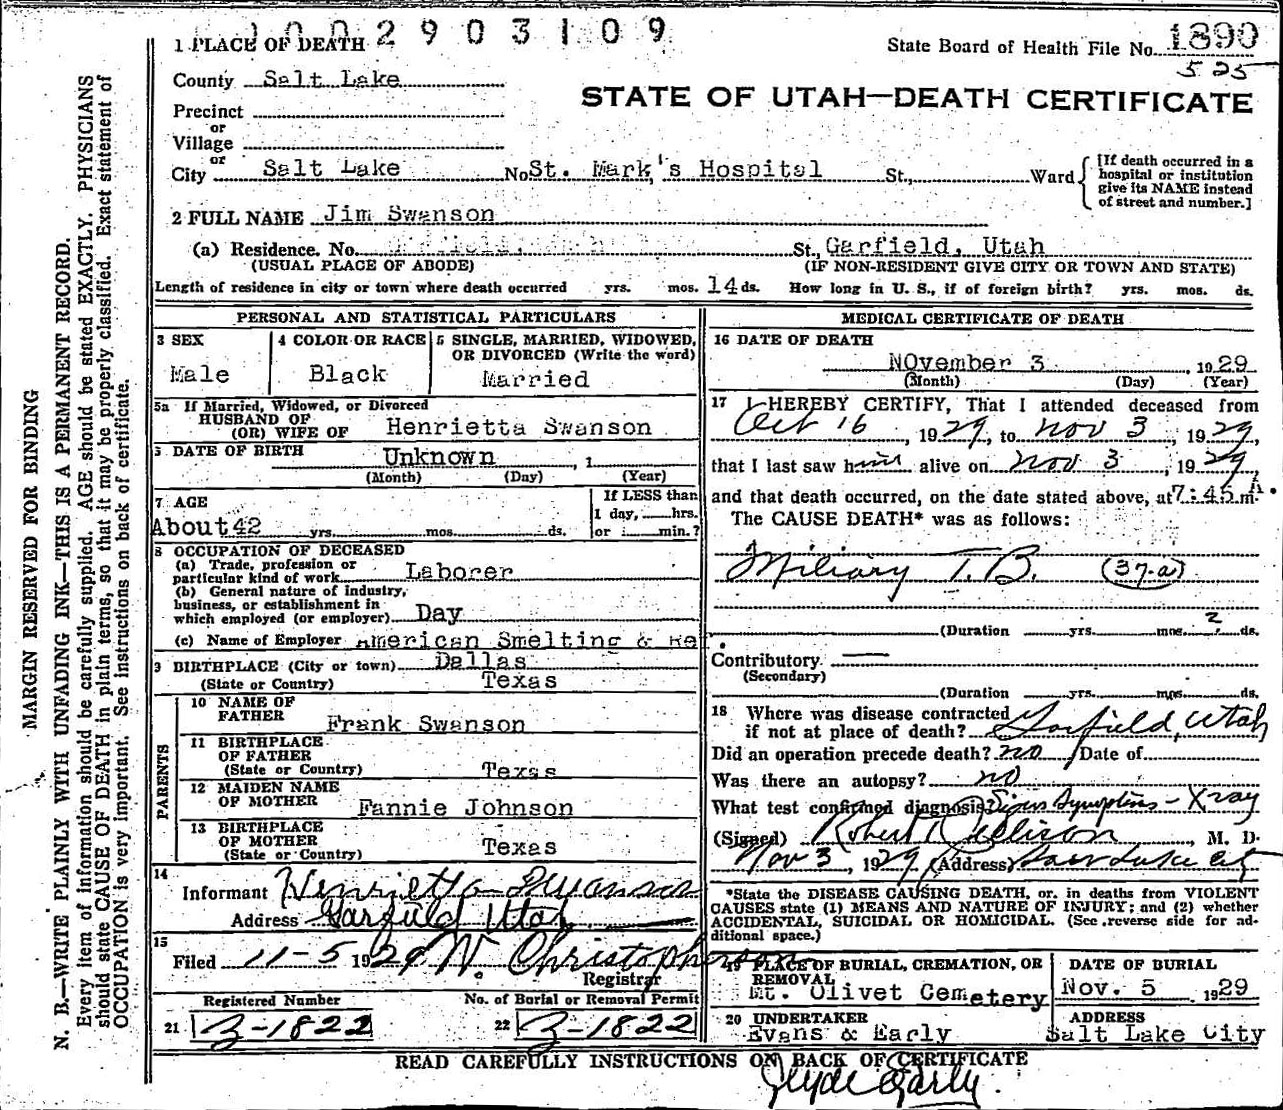 1002903109
1 PLACE OF DEATH
State Board of Health File No. 1890
525
County Salt Lake
STATE OF UTAH—DEATH CERTIFICATE
Precinct
or
Village
or
City Salt Lake No St. Mark's Hospital St., Ward
[If death occurred in a hospital or institution give its NAME instead of street and number.]
2 FULL NAME Jim Swanson
(a) Residence. No. St., Garfield, Utah
(USUAL PLACE OF ABODE) (IF NON-RESIDENT GIVE CITY OR TOWN AND STATE)
Length of residence in city or town where death occurred yrs. mos. 14 ds. How long in U. S., if of foreign birth? yrs. mos. ds.
PERSONAL AND STATISTICAL PARTICULARS
3 SEX
Male
4 COLOR OR RACE
Black
5 SINGLE, MARRIED, WIDOWED, OR DIVORCED (Write the word)
Married
5a If Married, Widowed, or Divorced
HUSBAND OF
(OR) WIFE OF Henrietta Swanson
DATE OF BIRTH Unknown , 1
(Month) (Day) (Year)
7 AGE
About 42 yrs. mos. ds.
If LESS than
1 day, hrs.
or min.?
8 OCCUPATION OF DECEASED
(a) Trade, profession or
particular kind of work Laborer
(b) General nature of industry,
business, or establishment in
which employed (or employer) Day
(c) Name of Employer American Smelting & Ref.
9 BIRTHPLACE (City or town) Dallas
(State or Country) Texas
PARENTS
10 NAME OF
FATHER Frank Swanson
11 BIRTHPLACE
OF FATHER
(State or Country) Texas
12 MAIDEN NAME
OF MOTHER Fannie Johnson
13 BIRTHPLACE
OF MOTHER
(State or Country) Texas
14
Informant Henrietta Swanson
Address Garfield Utah
15
Filed 11-5 1929 W. Christopherson
Registrar
Registered Number
21 Z-1822
No. of Burial or Removal Permit
22 Z-1822
MEDICAL CERTIFICATE OF DEATH
16 DATE OF DEATH
NOvember 3 , 1929
(Month) (Day) (Year)
17 I HEREBY CERTIFY, That I attended deceased from
Oct 16 , 1929, to Nov 3 , 1929,
that I last saw him alive on Nov 3 , 1929,
and that death occurred, on the date stated above, at 7:45 A.m.
The CAUSE DEATH* was as follows:
Miliary T. B. (37-a)
(Duration yrs. mos. 2 ds.
Contributory —
(Secondary)
(Duration yrs. mos. ds.
18 Where was disease contracted
if not at place of death? Garfield, Utah
Did an operation precede death? no Date of
Was there an autopsy? no
What test confirmed diagnosis? Signs Symptms - Xray
(Signed) Robert R. , M. D.
Nov 3, 1929 (Address) Salt Lake City
*State the DISEASE CAUSING DEATH, or, in deaths from VIOLENT
CAUSES state (1) MEANS AND NATURE OF INJURY; and (2) whether
ACCIDENTAL, SUICIDAL OR HOMICIDAL. (See reverse side for ad-
ditional space.)
19 PLACE OF BURIAL, CREMATION, OR
REMOVAL
Mt. Olivet Cemetery
DATE OF BURIAL
Nov. 5 , 1929
20 UNDERTAKER
Evans & Early
ADDRESS
Salt Lake City
READ CAREFULLY INSTRUCTIONS ON BACK OF CERTIFICATE
Clyde Early.
MARGIN RESERVED FOR BINDING
N. B.—WRITE PLAINLY WITH UNFADING INK—THIS IS A PERMANENT RECORD.
Every item of information should be carefully supplied. AGE should be stated EXACTLY. PHYSICIANS
should state CAUSE OF DEATH in plain terms, so that it may be properly classified. Exact statement of
OCCUPATION is very important. See instructions on back of certificate.